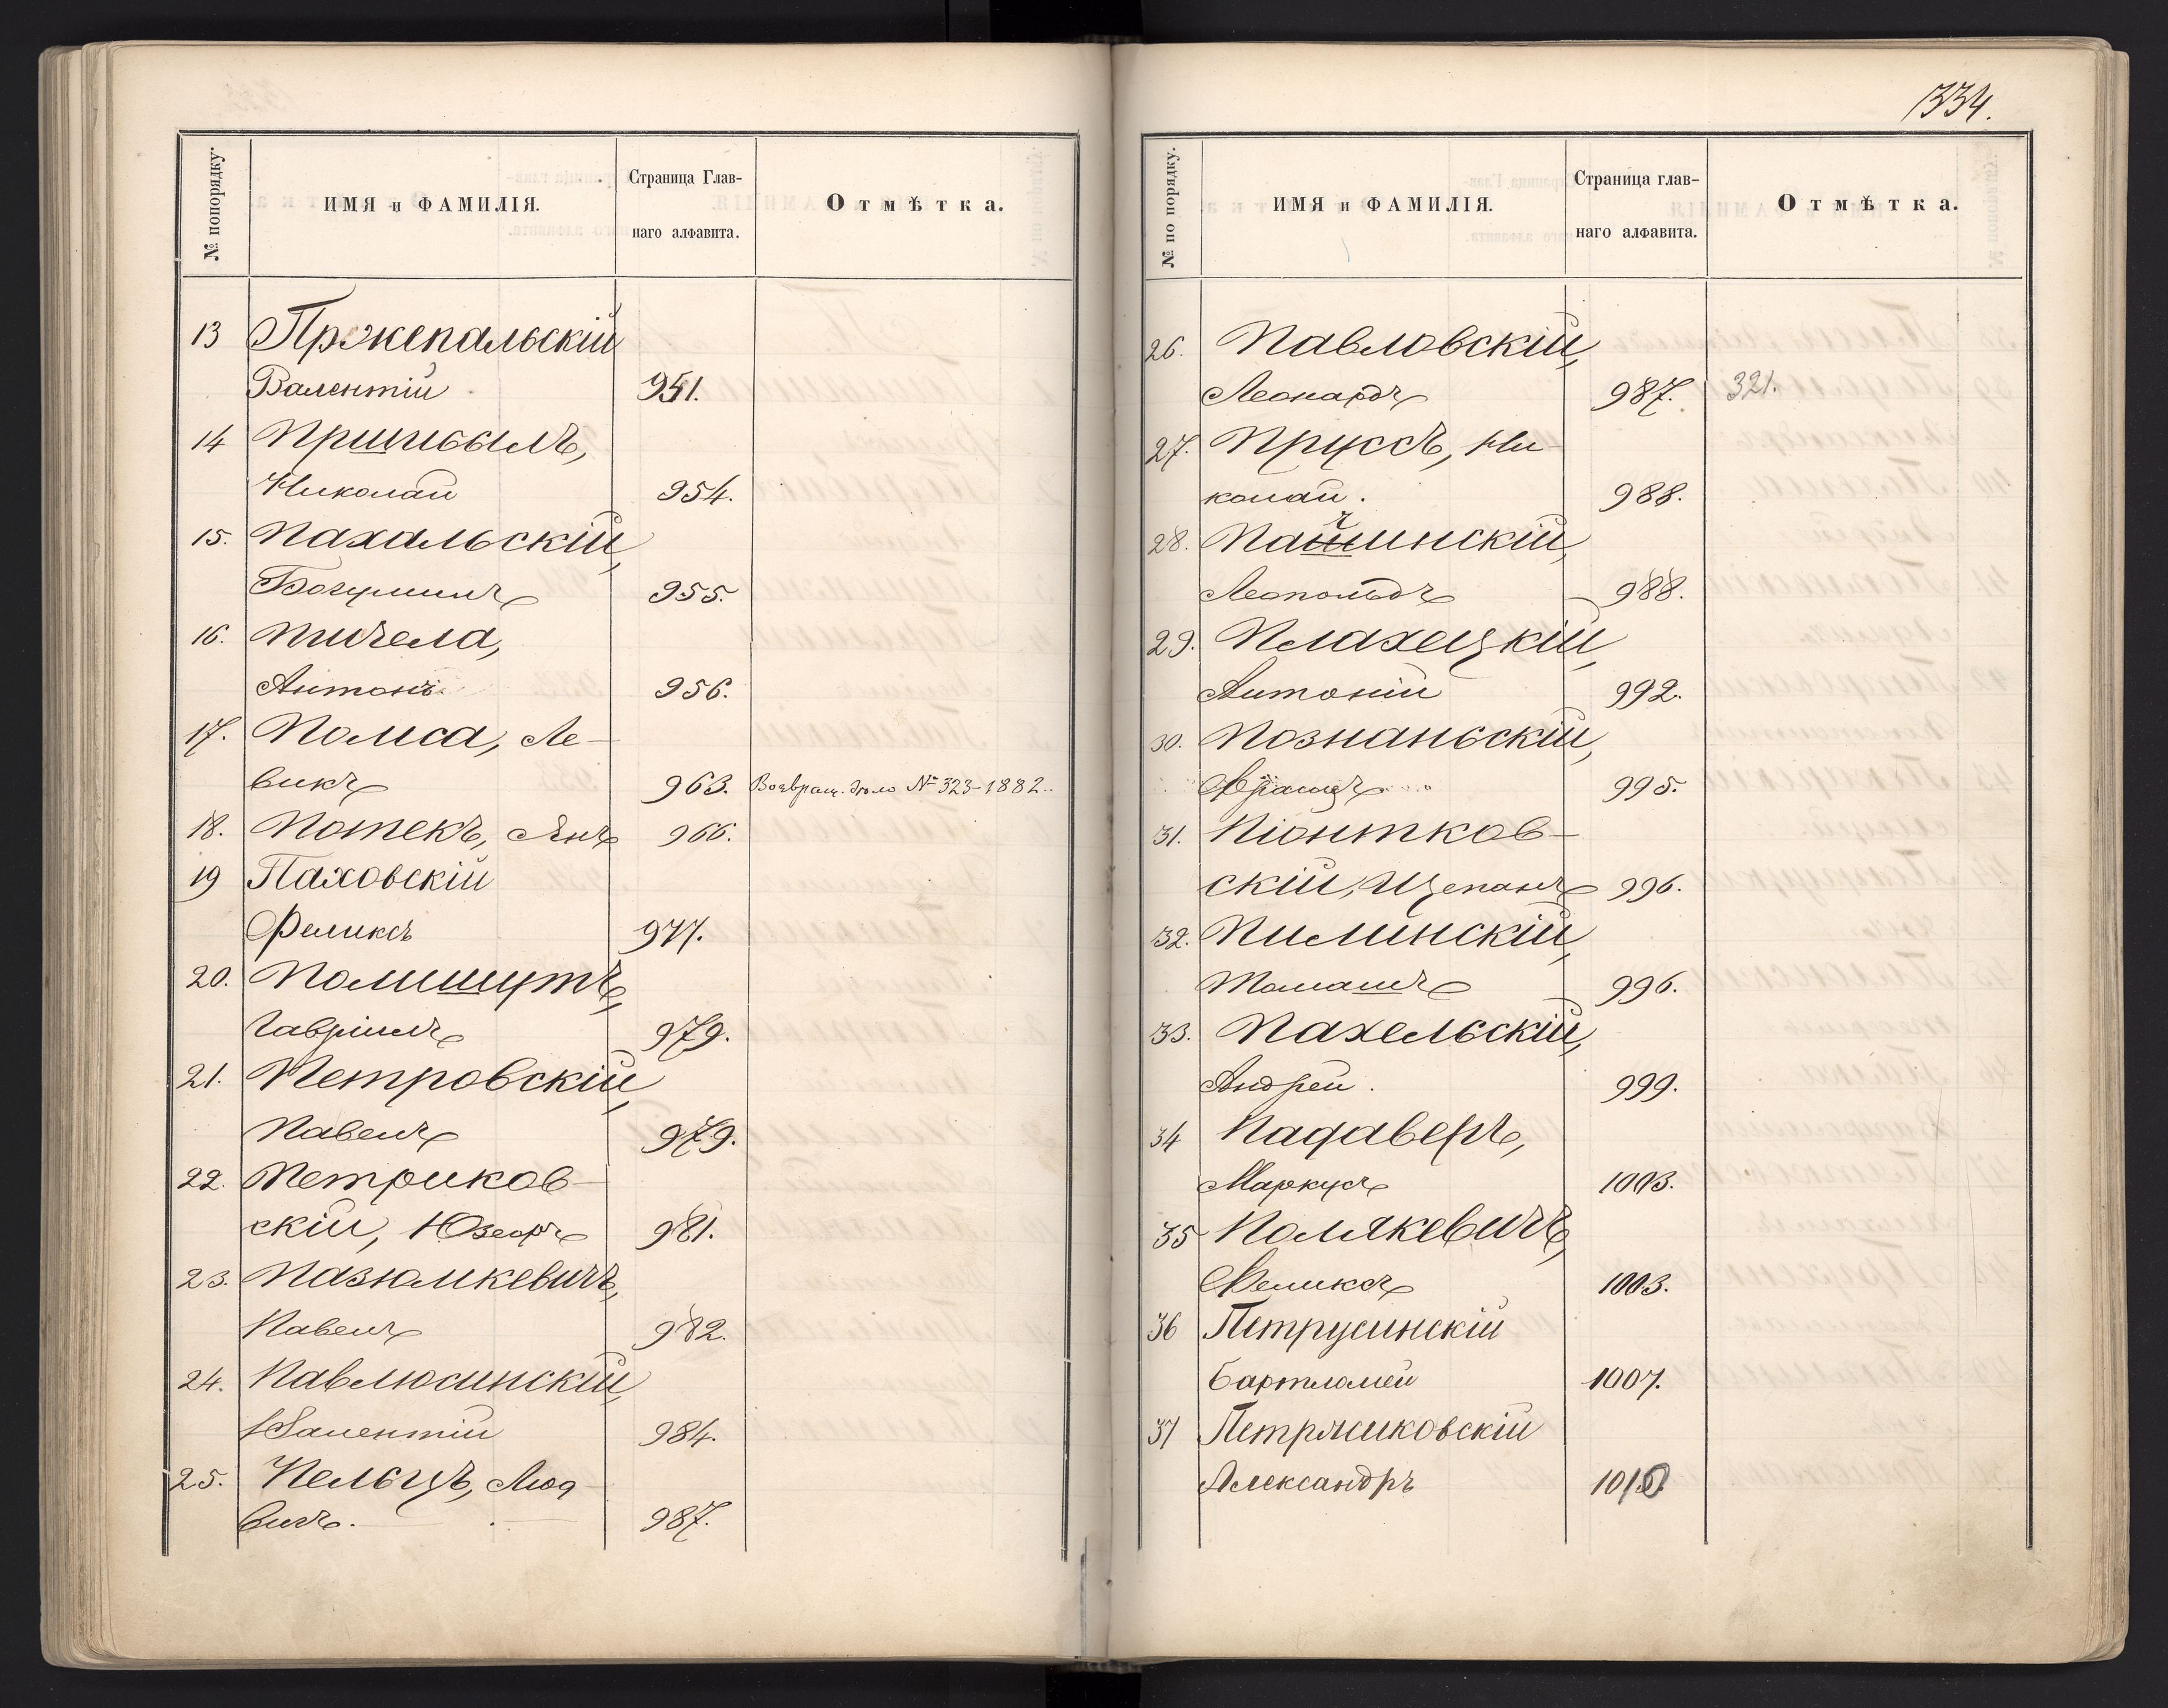 № попорядку.
ИМЯ и ФАМИЛІЯ.
Страница Глав-
наго алфавита.
Отмѣтка.
13 Пржепальскій
Валентій 951.
14 Пришибылъ,
Николай 954.
15. Пахальскій,
Богумилъ 955.
16. Пичела,
Антонъ 956.
17. Полиса, Ле-
викъ 963. Возвращ. дѣло № 323-1882.
18. Потекъ, Янъ 966.
19 Паховскій
Феликсъ 977.
20. Полишутъ,
Гавріилъ 979.
21. Петровскій,
Павелъ 979.
22. Петриков-
скій, Юзефъ 981.
23. Пазюлкевичъ,
Павелъ 982.
24. Павлюсинскій,
Валентій 984.
25. Пельцъ, Люд-
вигъ. 987.
334.
№ по порядку.
ИМЯ и ФАМИЛІЯ.
Страница глав-
наго алфавита.
Отмѣтка.
26. Павловскій,
Леонардъ 987. 321.
27. Пруссъ, Ни-
колай. 988.
28. Пачинскій,
Леопольдъ 988.
29. Плахецкій,
Антоній 992.
30. Познаньскій,
Францъ 995.
31. Піонтков-
скій, Щепанъ 996.
32. Пилинскій,
Томашъ 996.
33. Пахельскій,
Андрей. 999.
34 Падаверъ,
Маркусъ 1003.
35 Полякевичъ,
Феликсъ 1003.
36 Петрусинскій
Бартломей 1007.
37 Петрасиковскій
Александръ